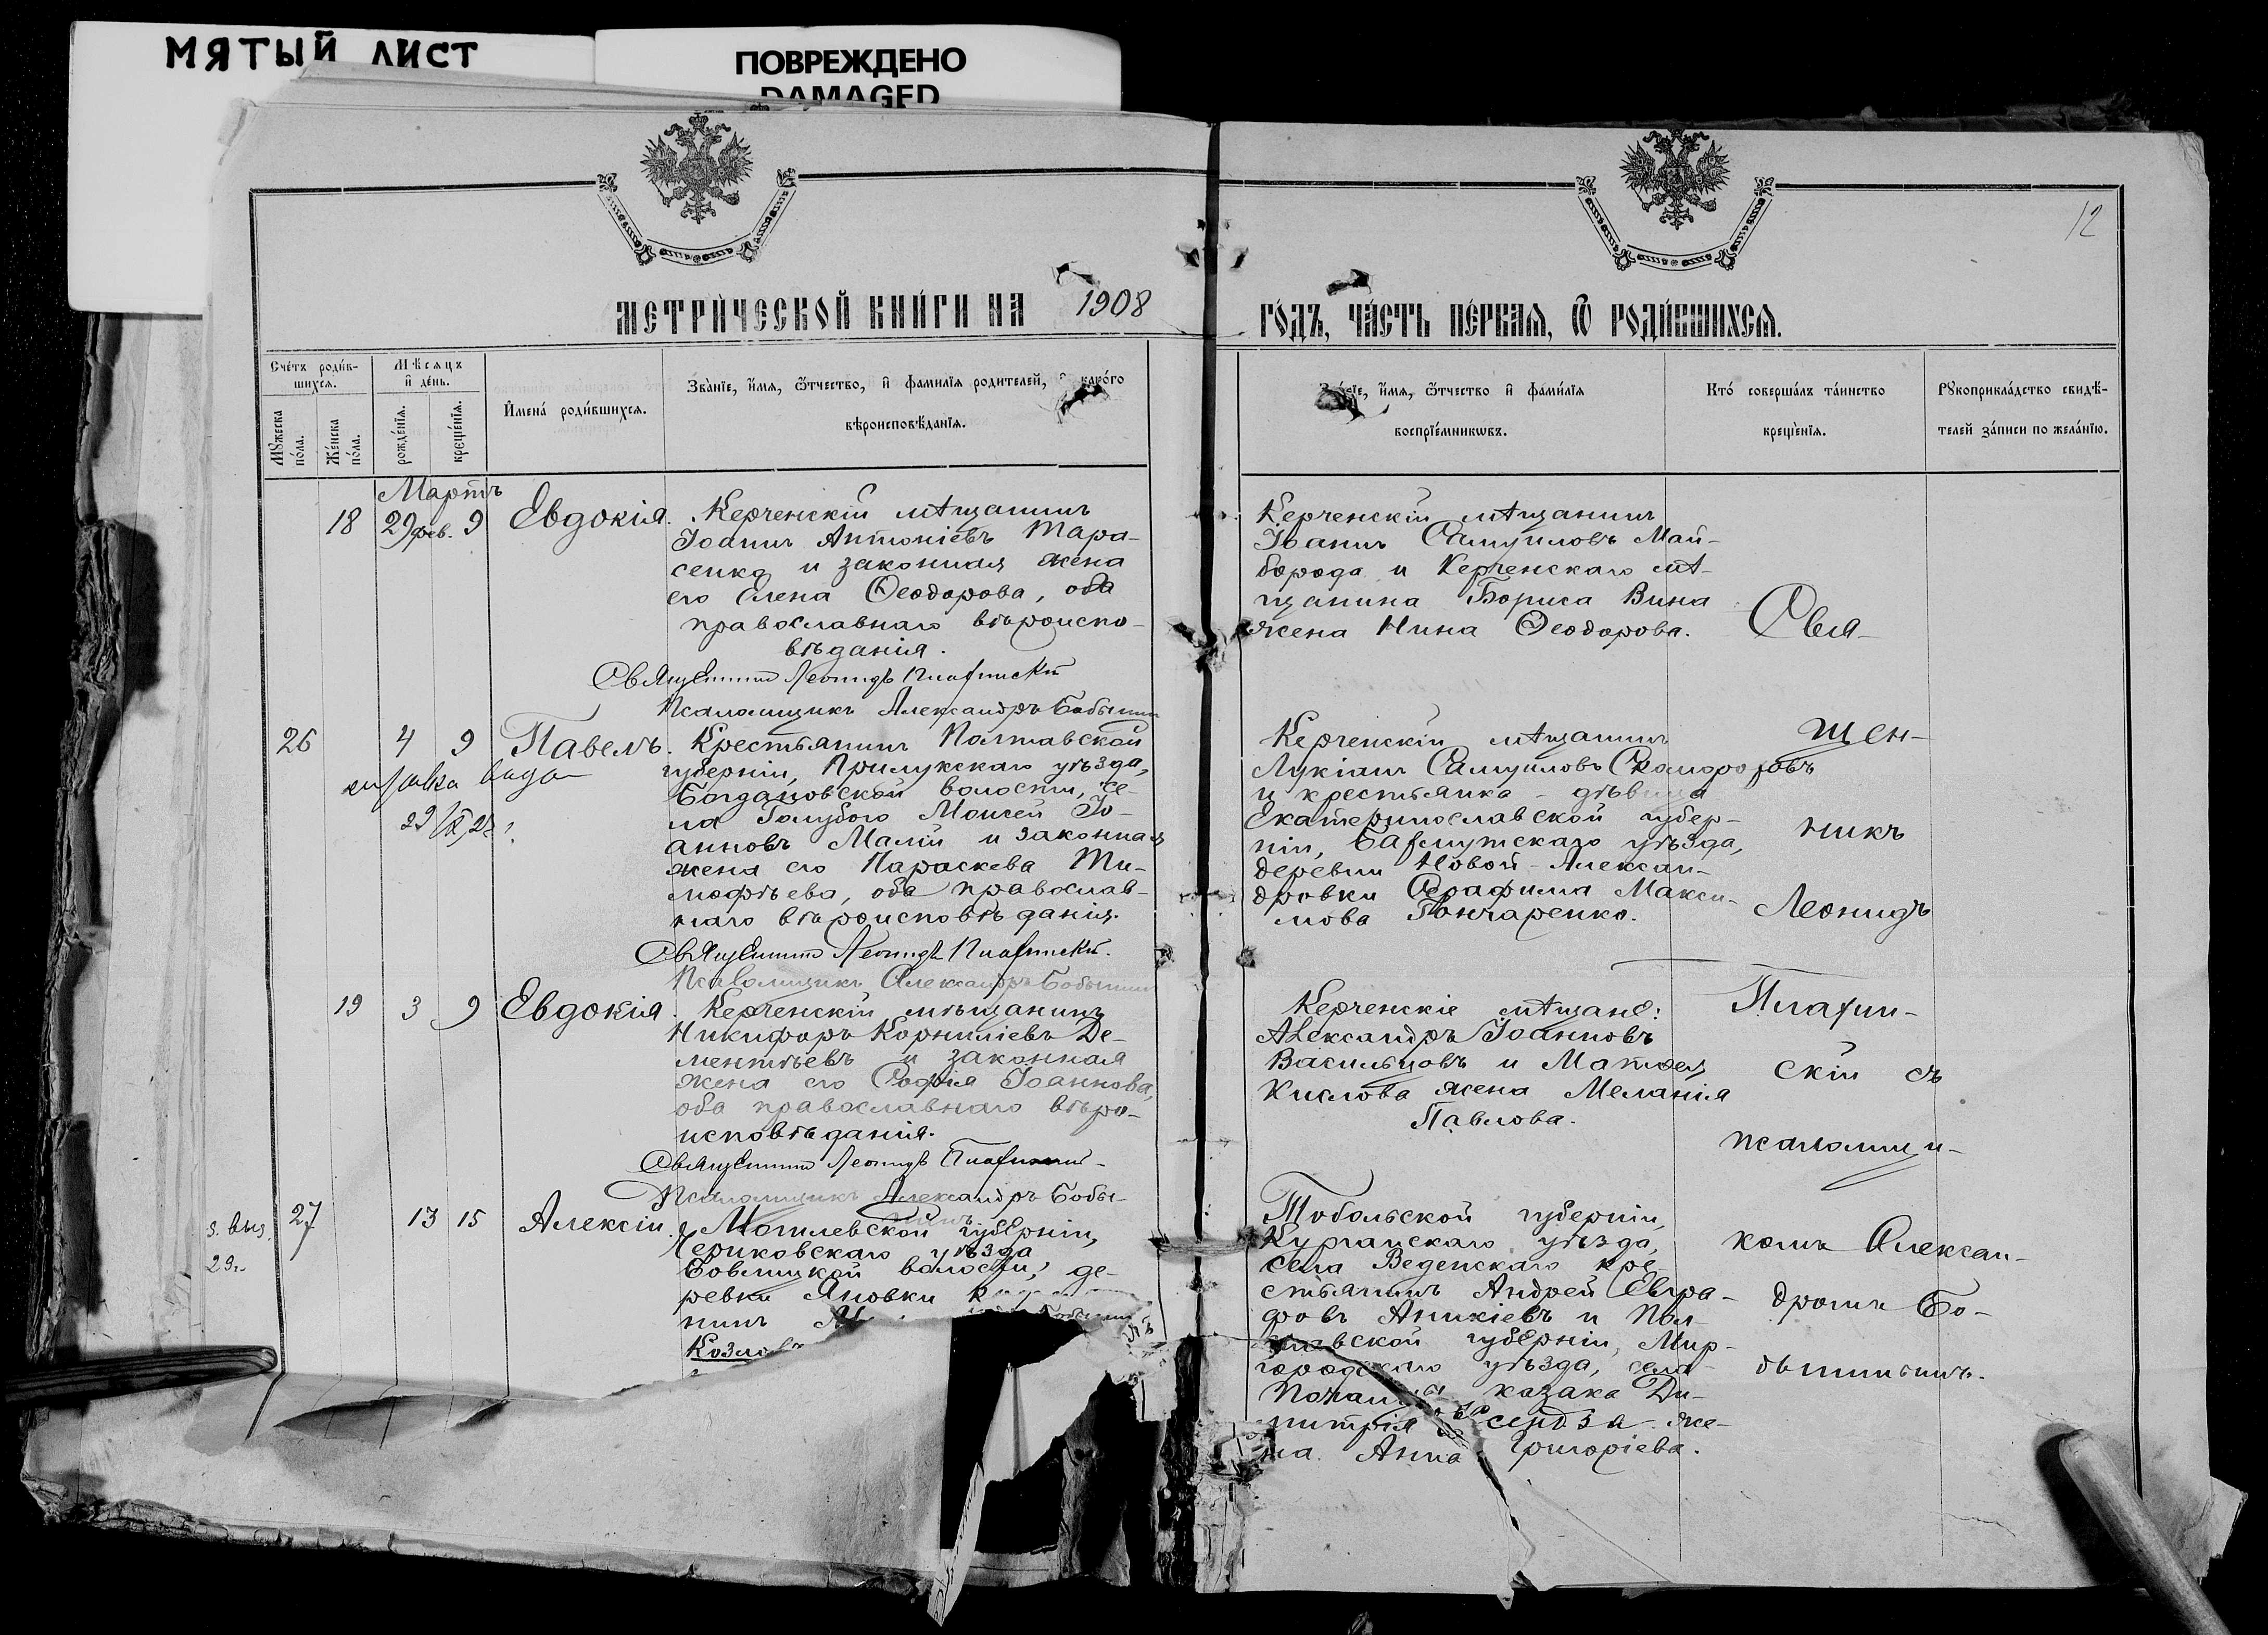 МЯТЫЙ ЛИСТ
ПОВРЕЖДЕНО
DAMAGED
12
МЕТРИ́ЧЕСКОЙ КНИ́ГИ НА 1908 ГО́ДЪ, ЧА́СТЬ ПЕ́РВАЯ, Ѡ РОДИ́ВШИХСЯ.
Счетъ роди́в-
шихся.
Мѣсяцъ
и де́нь.
Мужеска
по́ла.
Же́нска
по́ла.
рожде́нїя.
креще́нїя.
Имена́ роди́вшихся.
Зва́нїе, и́мя, ѻтчество, и фамилїя родителей, и како́го
вѣроисповѣ́данїя.
и́мя, ѻтчество и фами́лїя
воспрїе́мникѡвъ.
Кто́ соверша́лъ та́инство
креще́нїя.
Рукоприкла́дство свидѣ́-
телей за́писи по жела́нїю.
Мартъ
18 29 фев. 9 Евдокія.
Керченскій мѣщанинъ
Іоаннъ Антоніевъ Тара-
сенко и законная жена
его Елена Ѳеодорова, оба
православнаго вѣроиспо-
вѣданія.
Священникъ Леонидъ
Псаломщикъ Александръ
Керченскій мѣщанинъ
Іоаннъ Самуиловъ Май-
борода и Керченскаго мѣ-
щанина Бориса Вина
жена Нина Ѳеодорова.
26 4 9 Павелъ.
Крестьянинъ Полтавской
губерніи, Прилукскаго уѣзда,
Богдановской волости, се-
ла Голубого Моисей Іо-
анновъ Малій и законная
жена его Параскева Ти-
моѳѣева, оба православ-
наго вѣроисповѣданія.
Священникъ Леонидъ
Псаломщикъ Александръ
Керченскій мѣщанинъ
Лукіанъ Самуиловъ
и крестьянка - дѣвица
Екатеринославской губер-
ніи, Бахмутскаго уѣзда,
деревни Новой-Алексан-
дровки Серафима Макси-
мова Гончаренко.
19 3 9 Евдокія.
Керченскій мѣщанинъ
Никифоръ Корниліевъ Де-
ментьевъ и законная
жена его Софія Іоаннова,
оба православнаго вѣро-
исповѣданія.
Священникъ Леонидъ
Псаломщикъ Александръ Бобы-
Керченскіе мѣщане:
Александръ Іоанновъ
Васильцовъ и Матѳея
Кислова жена Меланія
Павлова.
27 13 15 Алексій.
29г.
Могилевской губерніи,
Чериковскаго уѣзда
волости, де-
ревни Яновки
Козловъ
Тобольской губерніи,
Курганскаго уѣзда,
села Веденскаго кре-
стьянинъ Андрей Евгра-
фовъ Аникіевъ и Пол-
тавской губерніи, Мир-
городскаго уѣзда, села
казака Ди-
митрія же-
на Анна Григоріева.
Свя-
щен-
никъ
Леонидъ
скій съ
псаломщи-
комъ Алексан-
дромъ Бо-